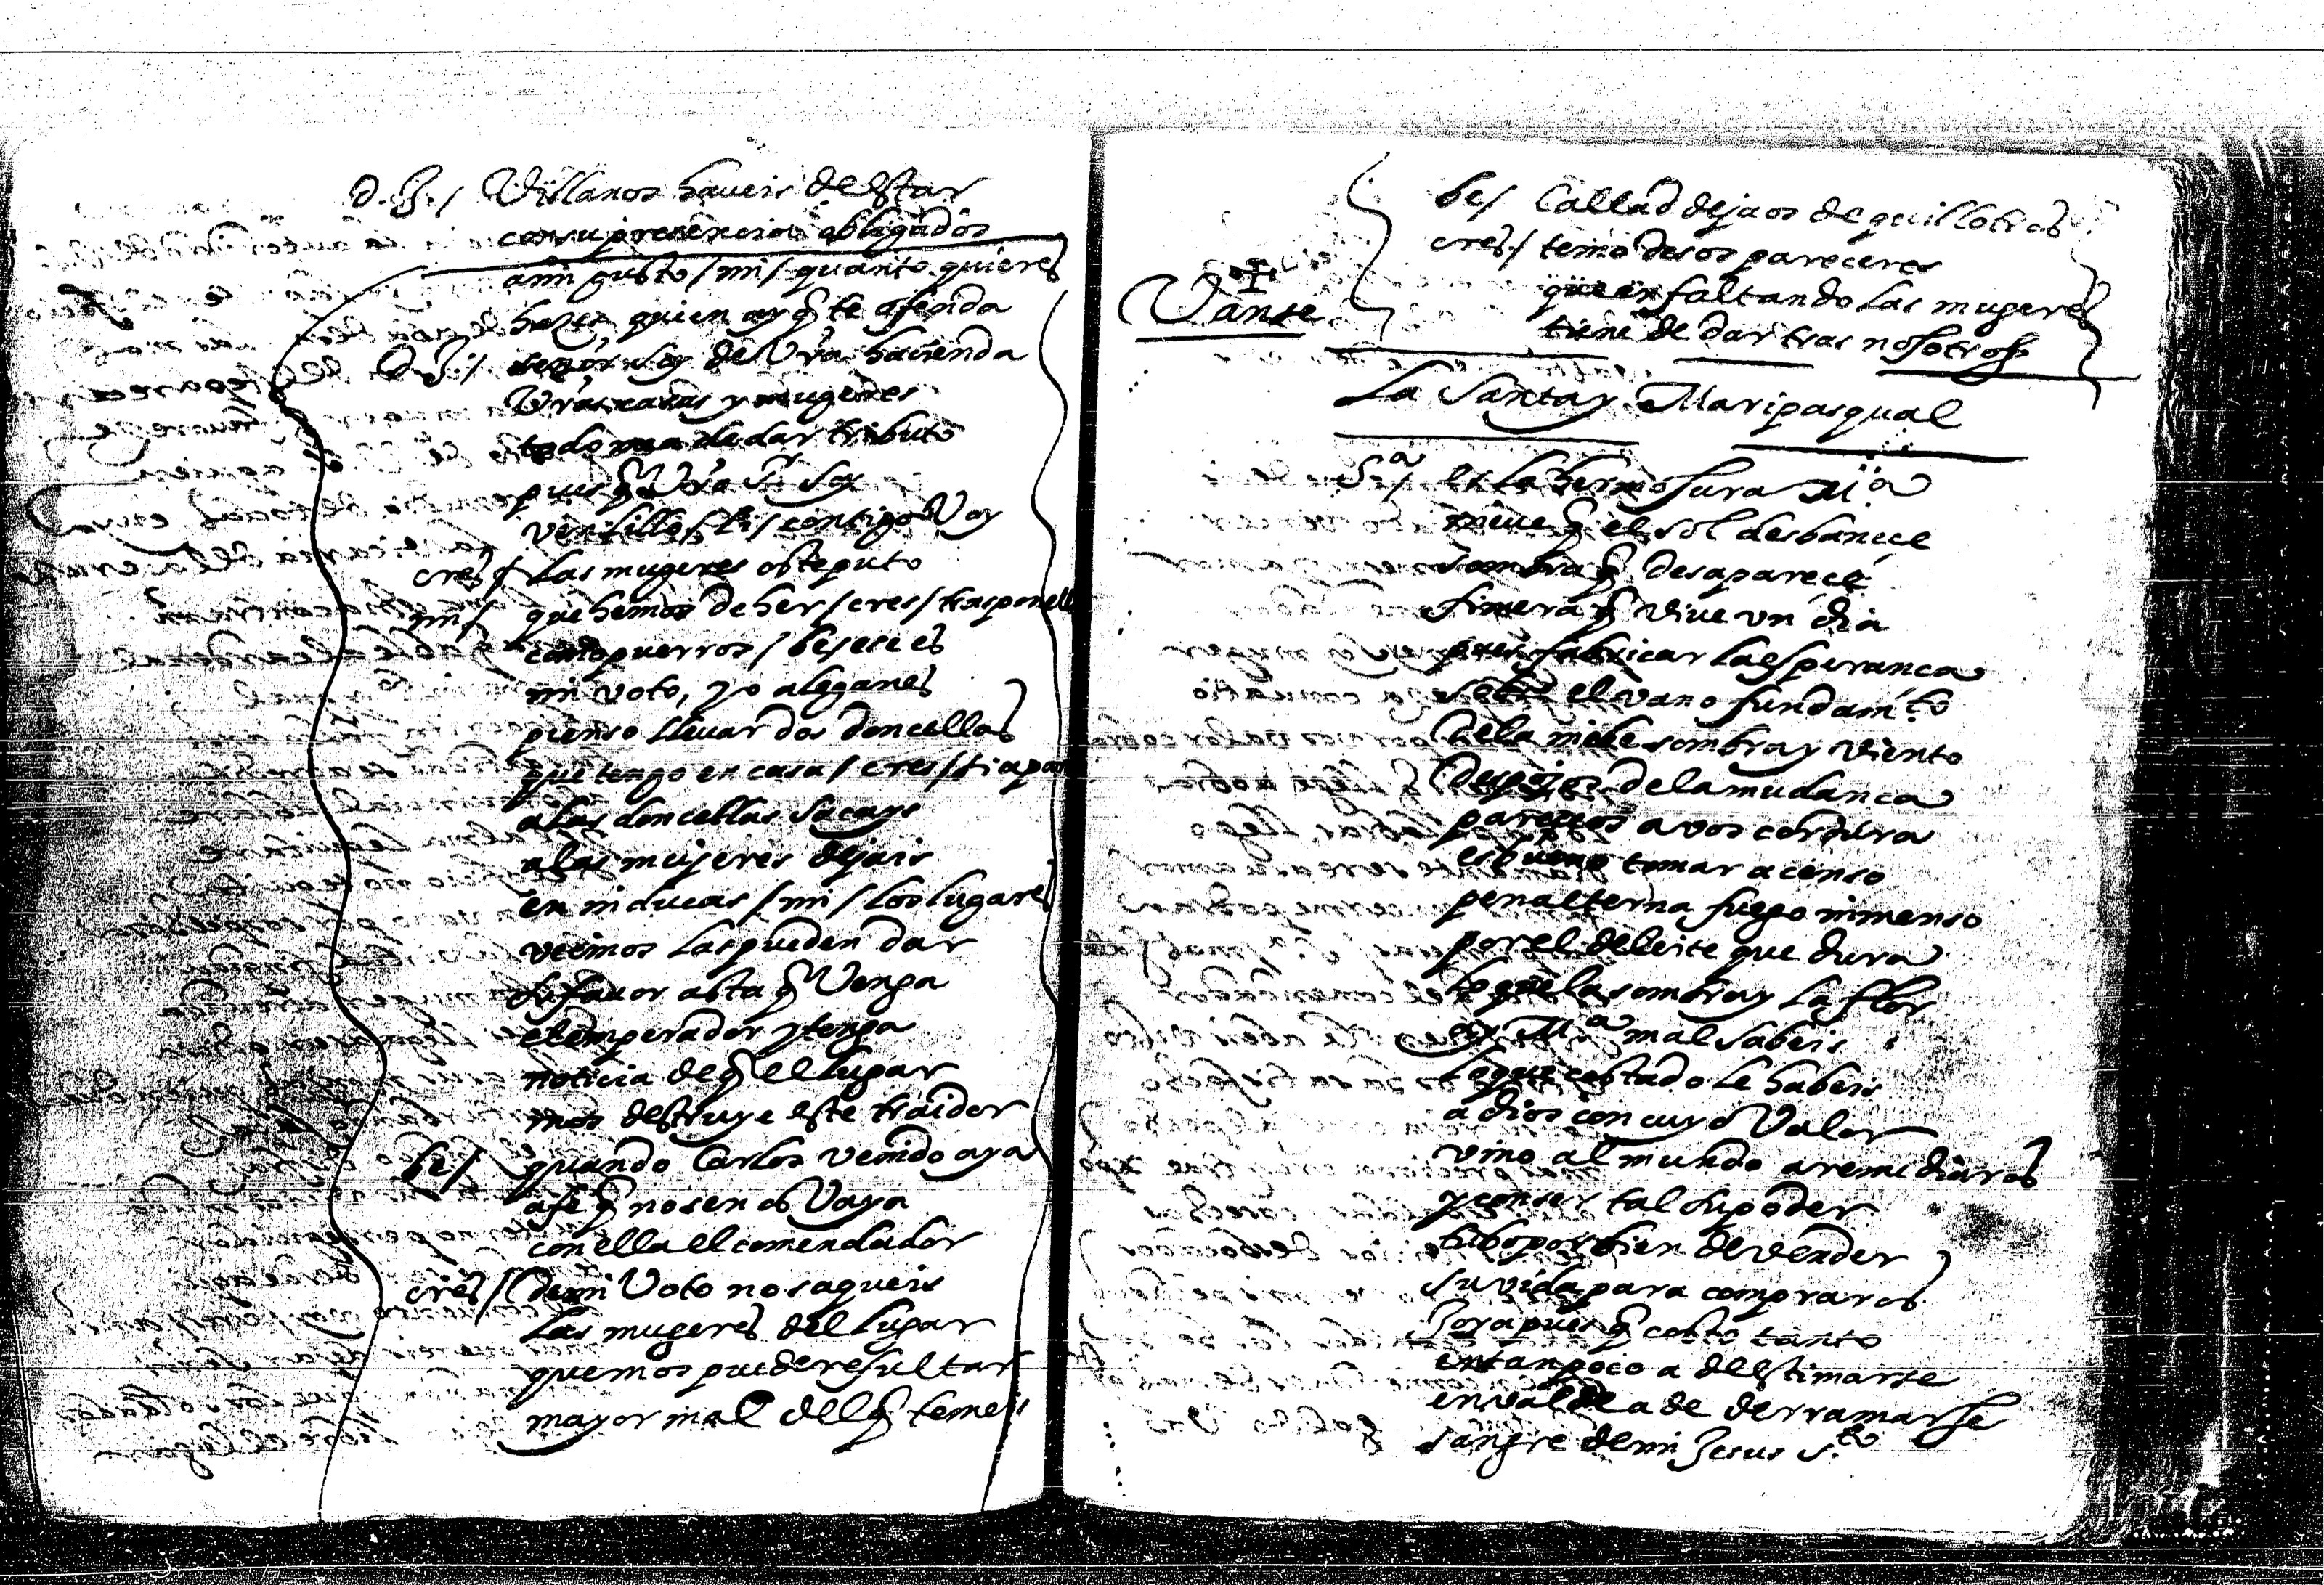 D. J. / Villanos haueis de estar
con su presencia obligados
a mi gusto / mi / quanto quieres
hazer quien ay q te ofenda
D. J. / señor soy de vra hacienda
vras casas y mugeres
todo me a de dar tributo
pues q vro Sr soy
ven lillo / li / contigo voy
cres / las mugeres oste puto
mi / que hemos de her / cres / trasponell
como puerros / be / ese es
mi voto, yo a leganes
pienso lleuar dos doncellas
que tengo en casa / cres /
a las doncellas sacays
a las mujeres dejais
en / mi / los lugares
vecinos las pueden dar
su fauor asta q venga
el emperador y tenga
noticia de q el lugar
mos destruye este traidor
be / quando Carlos venido aya
a fe q no se nos vaya
con ella el comendador
cres / de mi voto no saqueis
las mugeres del lugar
que mos puede resultar
mayor mal del q temeis
be / Callad dejaos de quillotros
cres / temo desos pareceres
que en faltando las mugeres
Vanse
tiene de dar tras nosotros
La Santa y Maripasqual
Sa / es la hermosura Ma
nieue q el sol desbanece
sombra q desaparece
fimera q viue vn dia
pues fabricar la esperanca
sobre el vano fundamto
de la nieue sombra y viento
despojos de la mudanca
pareceos a vos cordura
es bueno tomar a censo
pena eterna fuego inmenso
por el deleite que dura
lo que la sombra y la flor
ay Ma mal sabeis
lo que costado le habeis
a dios con cuyo valor
vino al mundo a remediaros
y con ser tal su poder
tubo por bien de vender
su vida para compraros
Joya pues q costo tanto
en tan poco a de estimarse
en valde a de derramarse
sangre de mi Jesus sto